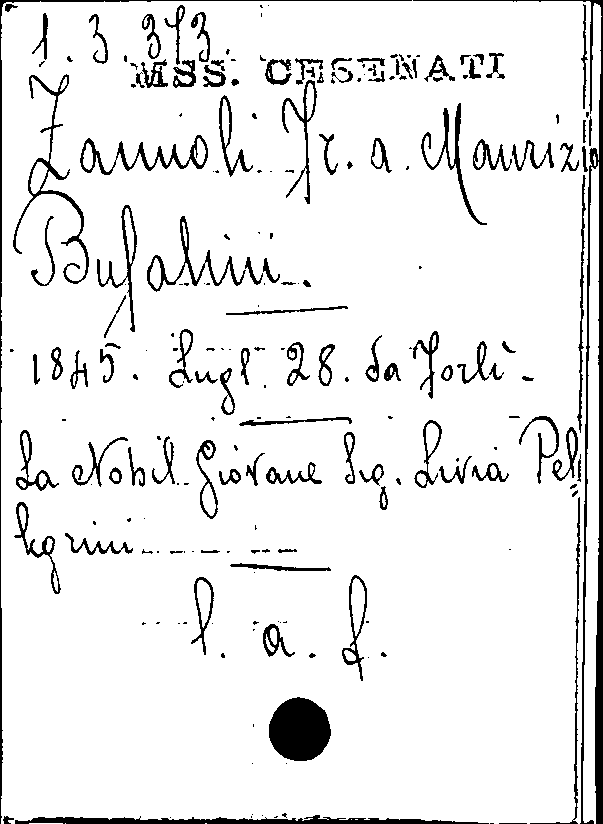 1. 3. 373.
MSS. CESENATI
Zannoli Fr. a. Maurizio
Bufalini.
1845. Lugl. 28. da Forlì -
La Nobil Giovane Sig. Livia Pel=
legrini
l. a. f.